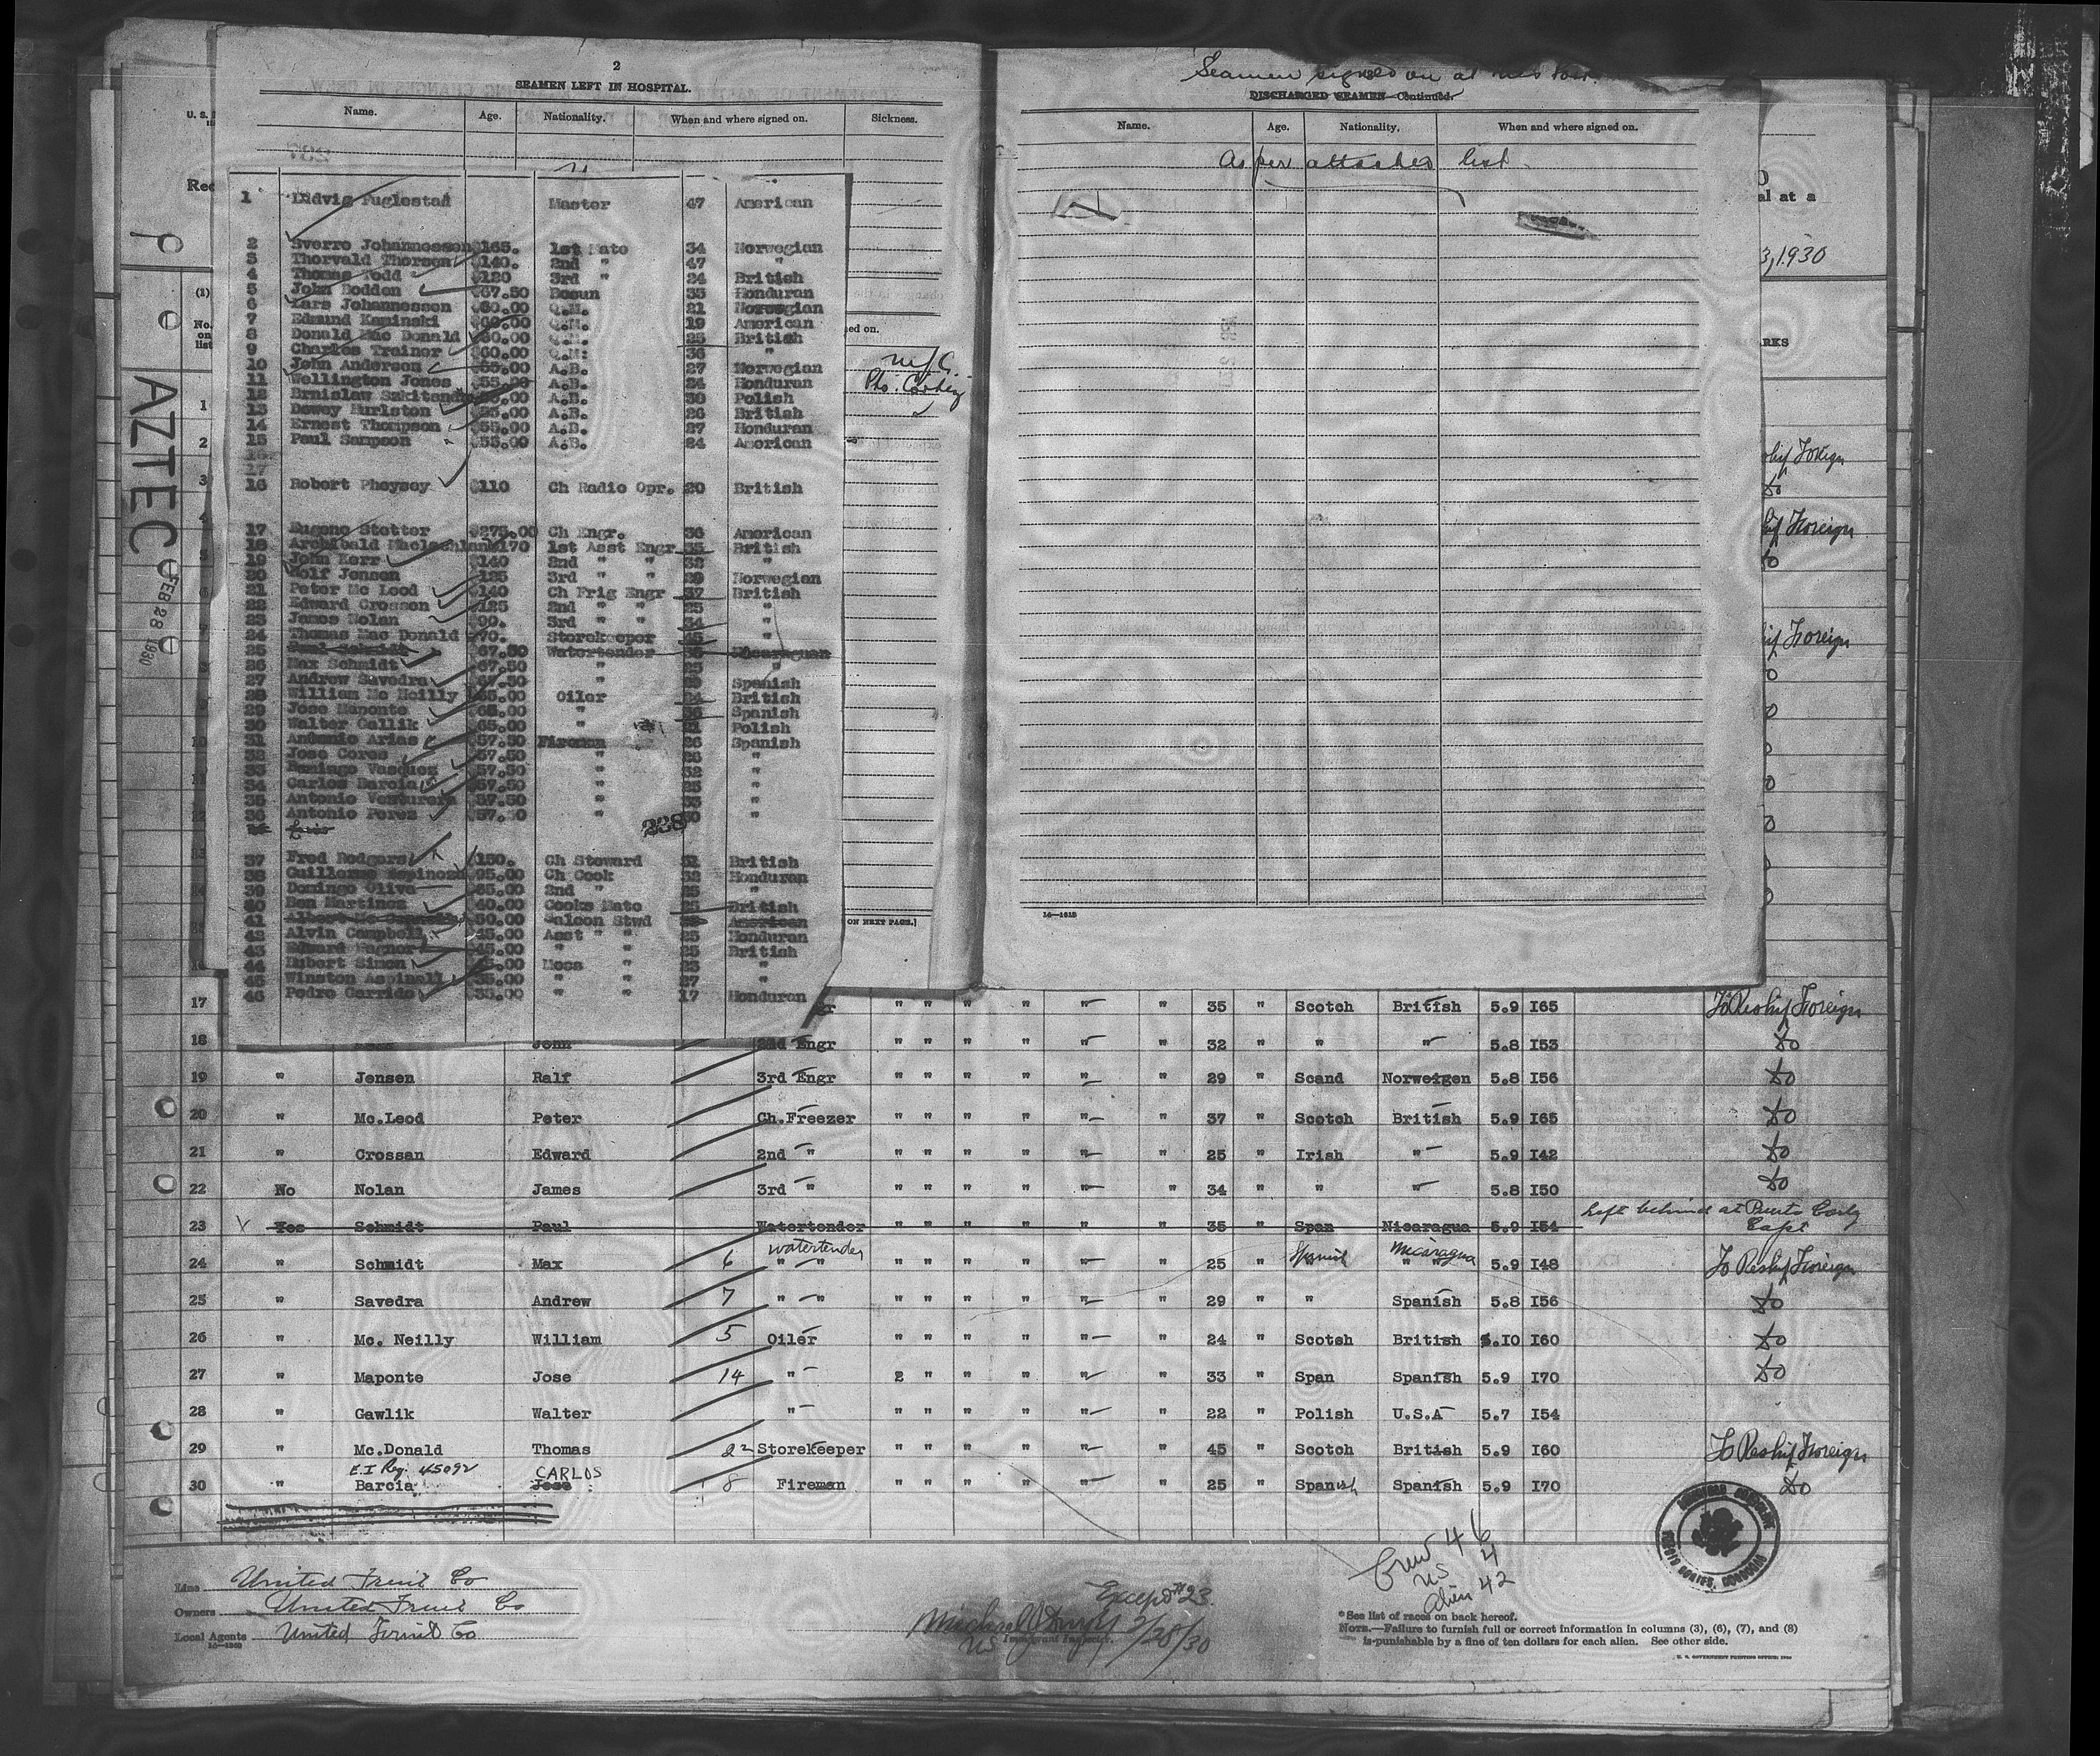 2
SEAMEN LEFT IN HOSPITAL.
Name. Age. Nationality. When and where signed on. Sickness.
1 Ludvig Fuglestad Master 47 American
2 Sverre Johannessen $165. 1st Mate 34 Norwegian
3 Thorvald Thorsen $140. 2nd " 47 "
4 Thomas Todd $120 3rd " 24 British
5 John Bodden $67.50 Bosun 33 Honduran
6 Lars Johannesson $60.00 Q.M. 21 Norwegian
7 Edmund Kaminski $60.00 Q.M. 19 American
8 Donald Mac Donald $60.00 Q.M. 25 British
9 Charles Trainor $60.00 Q.M. 36 "
10 John Anderson $55.00 A.B. 27 Norwegian
11 Wellington Jones $55.00 A.B. 24 Honduran
12 Brnislaw A.B. 30 Polish
13 Dewey Hurlston $55.00 A.B. 26 British
14 Ernest Thompson $55.00 A.B. 27 Honduran
15 Paul Sampson $55.00 A.B. 24 American
16 Robert Pheysey $110 Ch Radio Opr. 20 British
17 Eugene Stetter $275.00 Ch Engr. 36 American
18 Archibald Maclachlan $170 1st Asst Engr 35 British
19 John Kerr $140 2nd " " 32 "
20 Rolf Jensen $125 3rd " " 29 Norwegian
21 Peter Mc Leod $140 Ch Frig Engr 37 British
22 Edward Crossan $125 2nd " " 25 "
23 James Nolan $90. 3rd " " 34 "
24 Thomas Mac Donald $70. Storekeeper 45 "
25 Paul Schmidt $67.50 Watertender 35 Nicaraguan
26 Max Schmidt $67.50 " 25 "
27 Andrew Savedra $67.50 " 29 Spanish
28 William Mc Neilly $65.00 Oiler 24 British
29 Jose Maponte $65.00 " Spanish
30 Walter Callik $65.00 " 21 Polish
31 Antonio Arias $57.50 Fireman 26 Spanish
32 Jose Cores $57.50 " 26 "
33 Domingo Vasquez $57.50 " 32 "
34 Carlos Barcia $57.50 " 25 "
35 Antonio Venturera $57.50 " 33 "
36 Antonio Perez $57.50 " 30 "
238
37 Fred Rodgers $150. Ch Steward British
38 Guillermo Espinoza $95.00 Ch Cook 32 Honduran
39 Domingo Oliva $65.00 2nd " 25 "
40 Ben Martinez $40.00 Cooks Mate 25 British
41 Albert $50.00 Saloon Stwd American
42 Alvin Campbell $45.00 Asst " " 35 Honduran
43 Edward Wagner $45.00 " " 25 British
44 Hubert Simon Mess " 23 "
45 Winston Aspinall $35.00 " " 27 "
46 Pedro Garrido $35.00 " " 17 Honduran
ON NEXT PAGE.]
Seamen signed on at this Port
DISCHARGED SEAMEN—Continued.
Name. Age. Nationality. When and where signed on.
As per attached list
16—1815
3, 1930
AZTEC
FEB 28 1930
17 " " " " " " 35 " Scotch British 5.9 I65 To Reship Foreign
18 John 2nd Engr " " " " " " 32 " " " 5.8 I53 Do
19 " Jensen Ralf 3rd Engr " " " " " " 29 " Scand Norweigen 5.8 I56 Do
20 " Mc.Leod Peter Ch.Freezer " " " " " " 37 " Scotch British 5.9 I65 Do
21 " Crossan Edward 2nd " " " " " " " 25 " Irish " 5.9 I42 Do
22 No Nolan James 3rd " " " " " " " 34 " " " 5.8 I50 Do
23 Yes Schmidt Paul Watertender 35 Span Nicaragua 5.9 I54 Left behind at Puerto Castilla
24 " Schmidt Max 6 Watertender " " " " " " " " 25 " Spanish Nicaragua " " 5.9 I48 To Reship Foreign
25 " Savedra Andrew 7 " " " " " " " " 29 " " Spanish 5.8 I56 Do
26 " Mc. Neilly William 5 Oiler " " " " " " 24 " Scotch British 5.10 I60 Do
27 " Maponte Jose 14 " 2 " " " " " 33 " Span Spanish 5.9 I70 Do
28 " Gawlik Walter " " " " " " " 22 " Polish U.S.A 5.7 I54
29 " Mc.Donald Thomas 22 Storekeeper " " " " " " 45 " Scotch British 5.9 I60 To Reship Foreign
E.I Reg. 45092 CARLOS
30 " Barcia Jose 8 Fireman " " " " " " 25 " Spanish Spanish 5.9 I70 Do
Crew 46
US 4
Alien 42
Line United Fruit Co
Owners United Fruit Co
Local Agents United Fruit Co
Except #23.
2/28/30
US Immigrant Inspector.
*See list of races on back hereof.
NOTE.—Failure to furnish full or correct information in columns (3), (6), (7), and (8)
is punishable by a fine of ten dollars for each alien. See other side.
U. S. GOVERNMENT PRINTING OFFICE